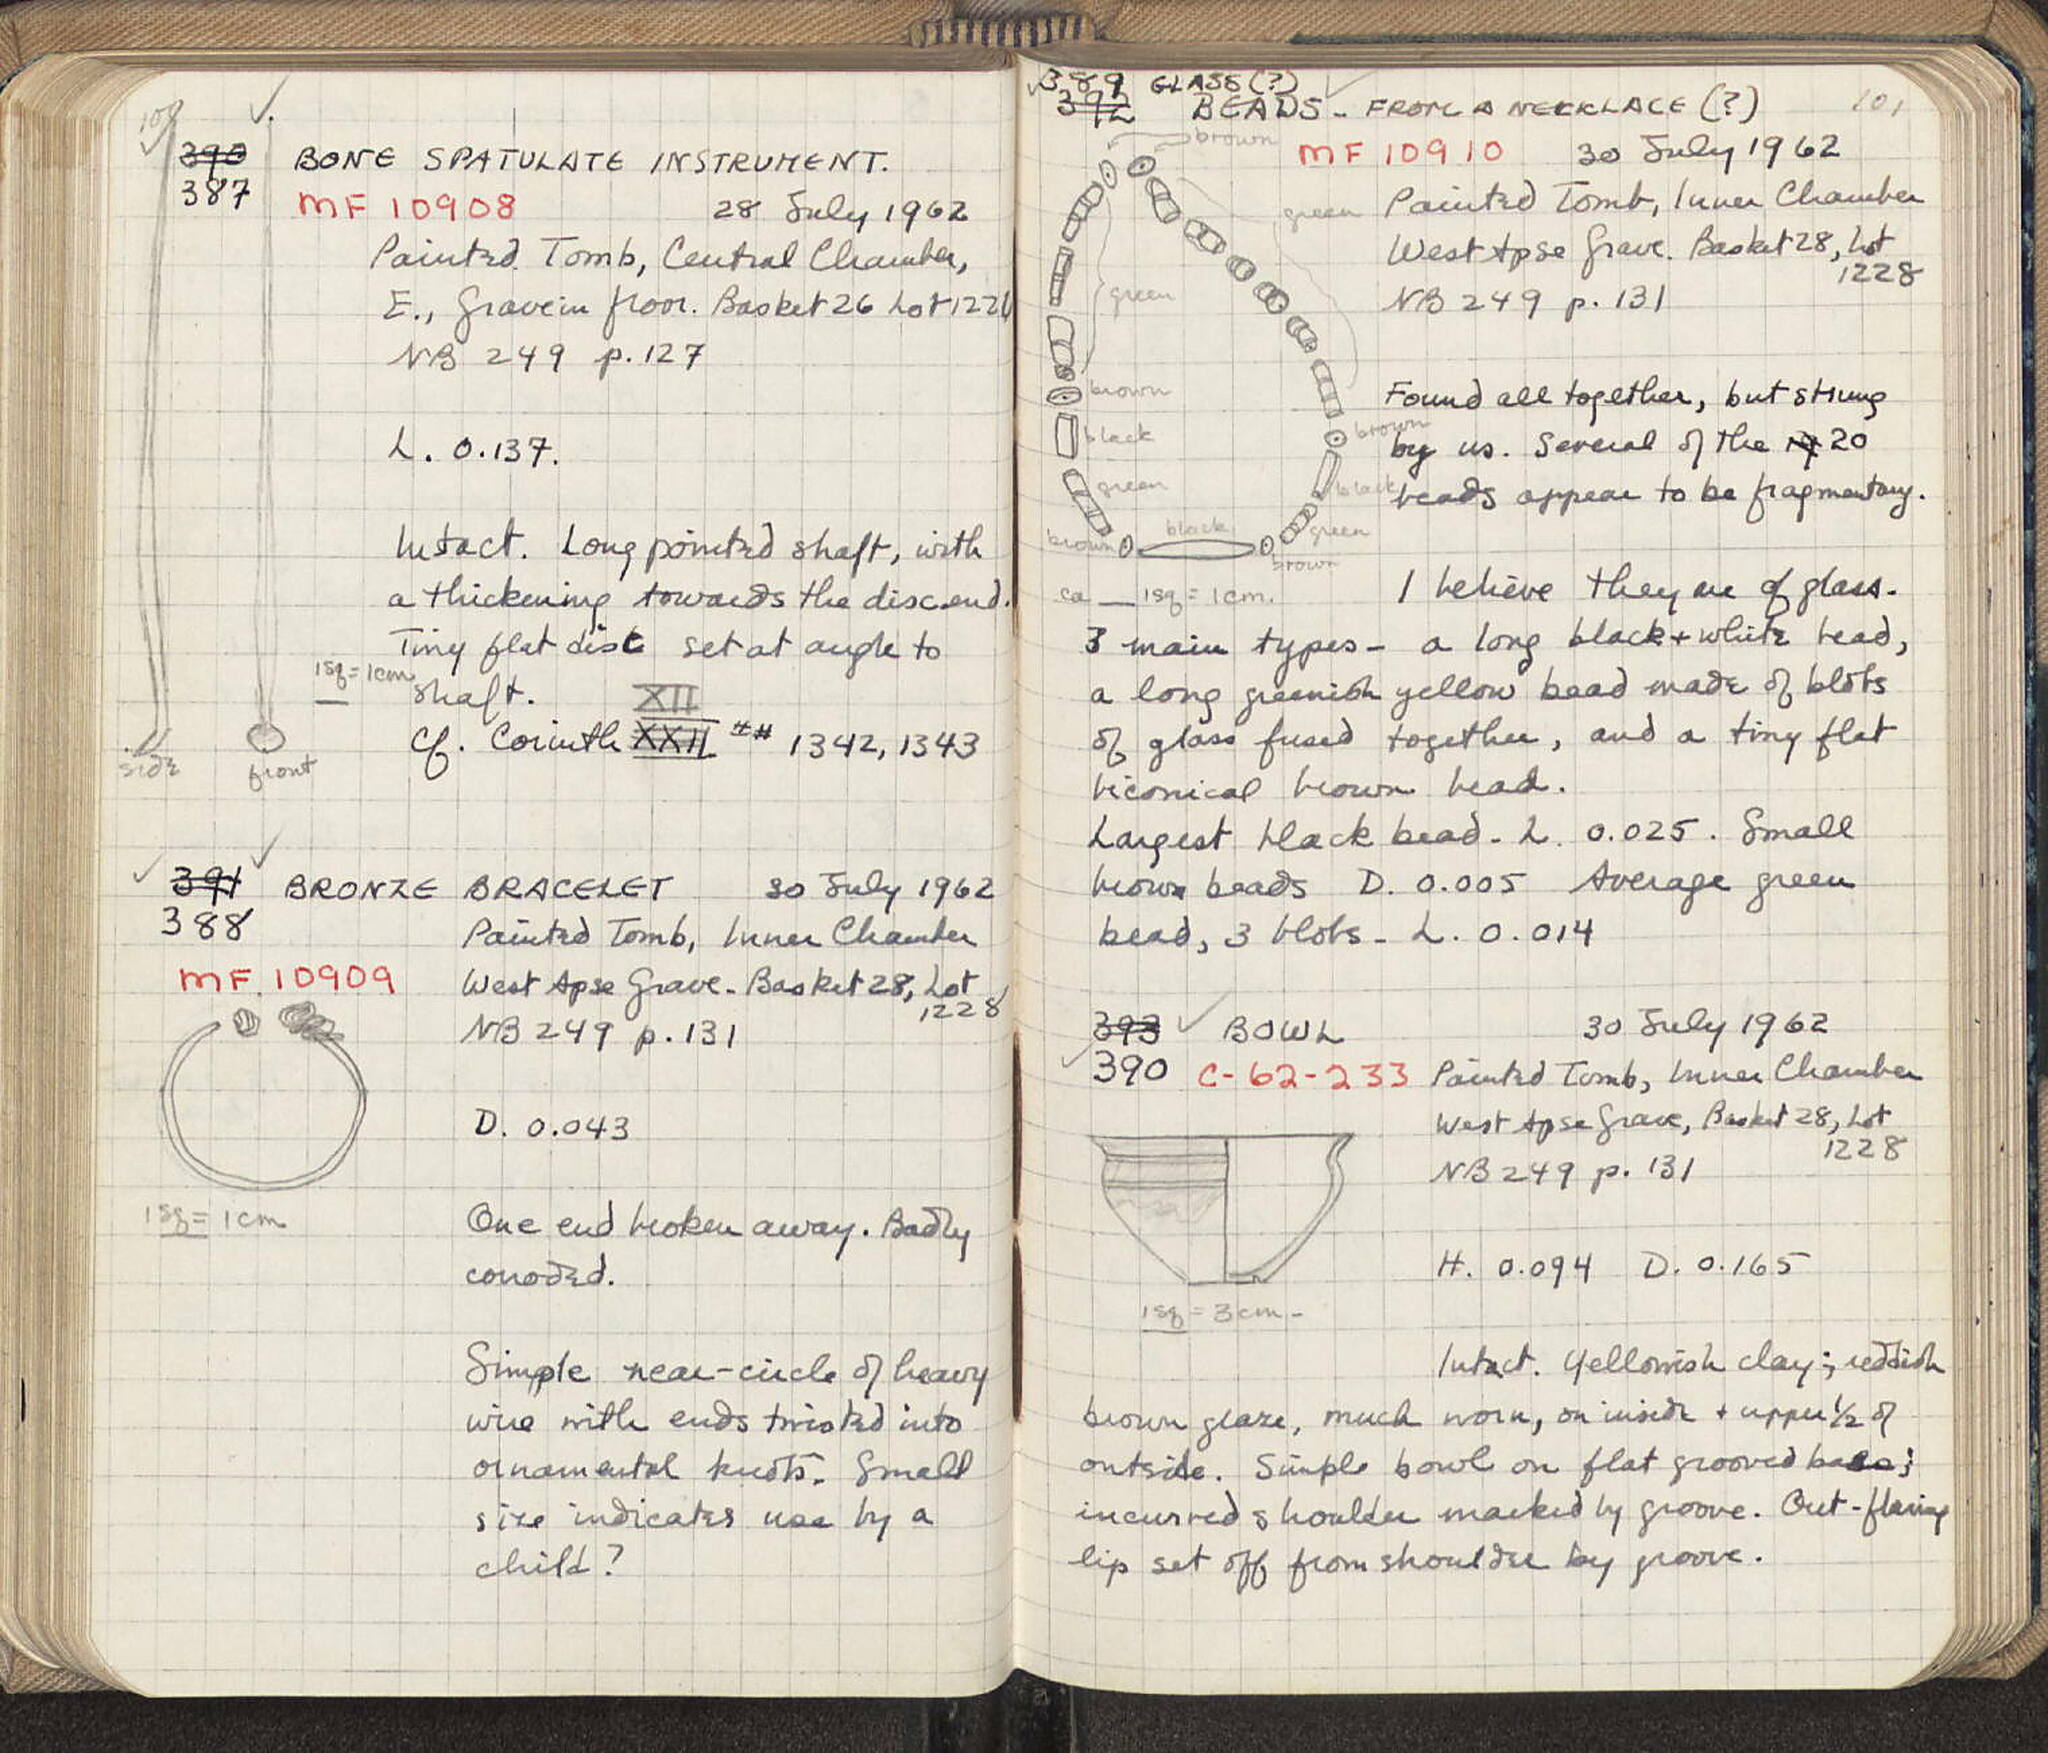 100
390 BONE SPATULATE INSTRUMENT.
387 MF 10908 28 July 1962
Painted Tomb, Central Chamber,
E., Grave in floor. Basket 26 Lot 1226
NB 249 p. 127
L. 0.137.
Intact. Long pointed shaft, with
a thickening towards the disc end.
Tiny flat disc set at angle to
1sq = 1cm
shaft. XII
cf. Corinth XXII ## 1342, 1343
side front
391 BRONZE BRACELET 30 July 1962
388 Painted Tomb, Inner Chamber
MF 10909 West Apse Grave. Basket 28, Lot
1228
NB 249 p. 131
D. 0.043
1sq = 1cm
One end broken away. Badly
corroded.
Simple near-circle of heavy
wire with ends twisted into
ornamental knots. Small
size indicates use by a
child?
389 GLASS (?)
392 BEADS - FROM A NECKLACE (?) 101
brown
MF 10910 30 July 1962
green Painted Tomb, Inner Chamber
West Apse Grave. Basket 28, Lot
1228
green NB 249 p. 131
brown Found all together, but strung
black brown by us. Several of the 19 20
green black beads appear to be fragmentary.
brown black green
brown
ca 1sq = 1cm. I believe they are of glass.
3 main types - a long black + white bead,
a long greenish yellow bead made of blobs
of glass fused together, and a tiny flat
biconical brown bead.
Largest black bead - L. 0.025. Small
brown beads D. 0.005 Average green
bead, 3 blobs - L. 0.014
393 BOWL 30 July 1962
390 C-62-233 Painted Tomb, Inner Chamber
West Apse Grave, Basket 28, Lot
1228
NB 249 p. 131
H. 0.094 D. 0.165
1sq = 3cm-
Intact. Yellowish clay; reddish
brown glaze, much worn, on inside + upper 1/2 of
outside. Simple bowl on flat grooved base;
incurved shoulder marked by groove. Out-flaring
lip set off from shoulder by groove.